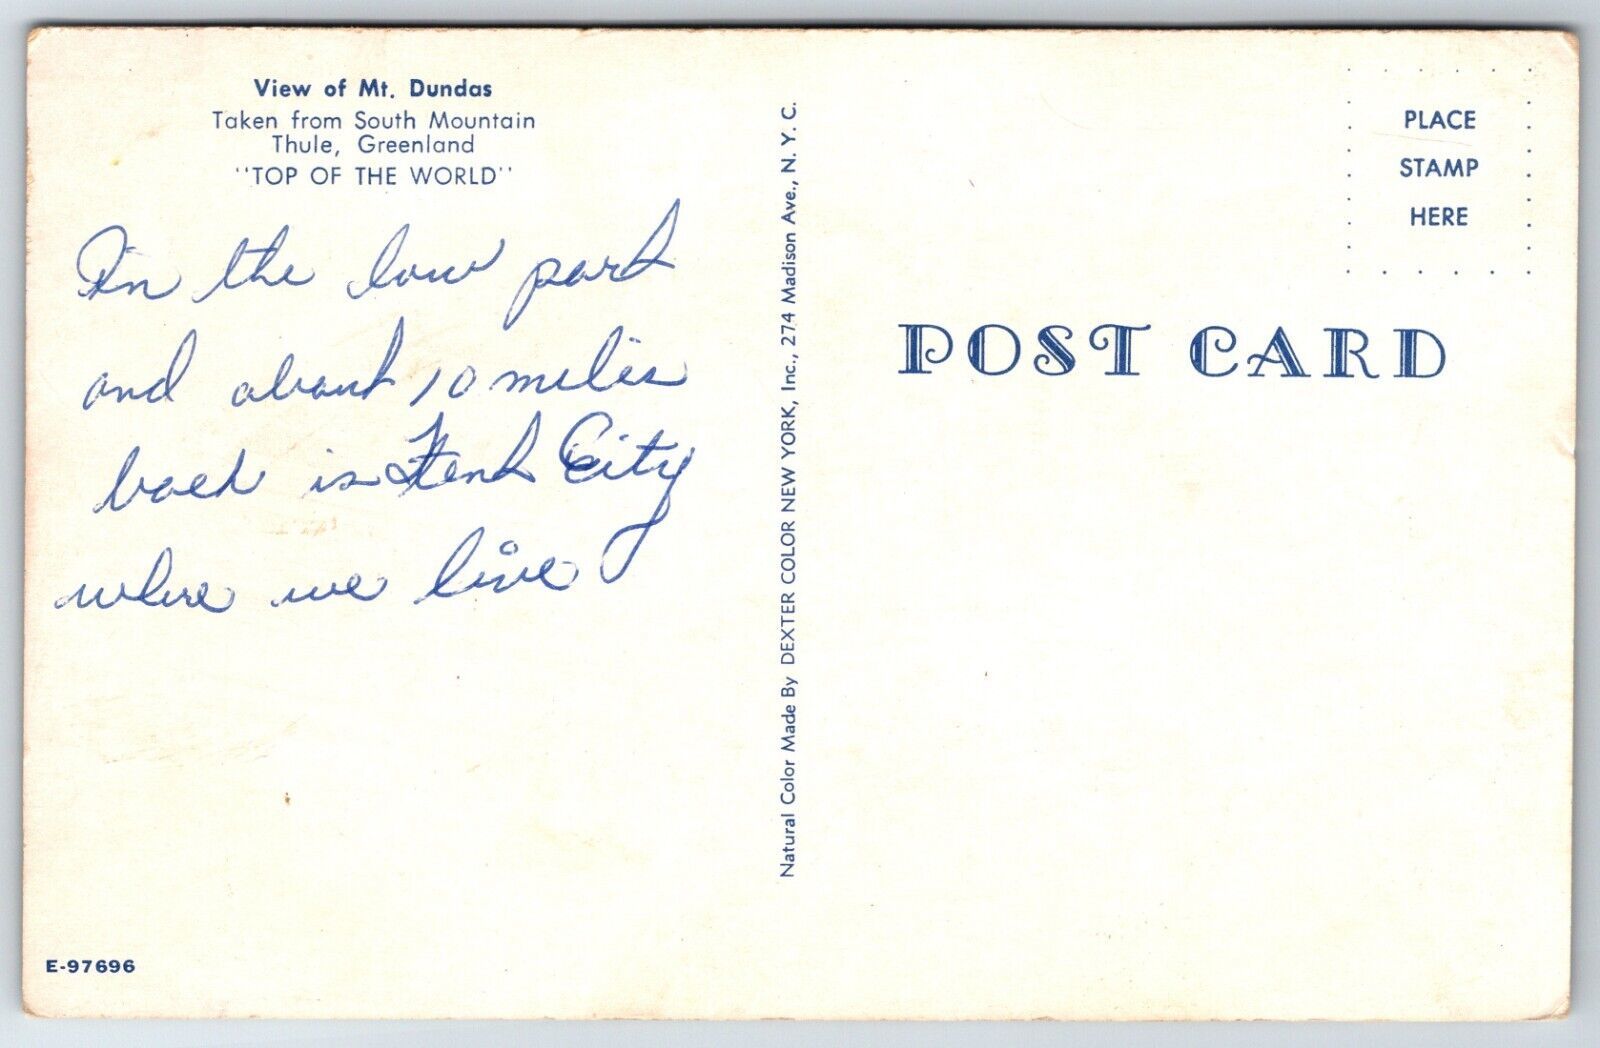 View of Mt. Dundas
Taken from South Mountain
Thule, Greenland
"TOP OF THE WORLD"
In the low part
and about 10 miles
back is Tent City
where we live
E-97696
Natural Color Made By DEXTER COLOR NEW YORK, Inc., 274 Madison Ave., N. Y. C.
PLACE
STAMP
HERE
POST CARD